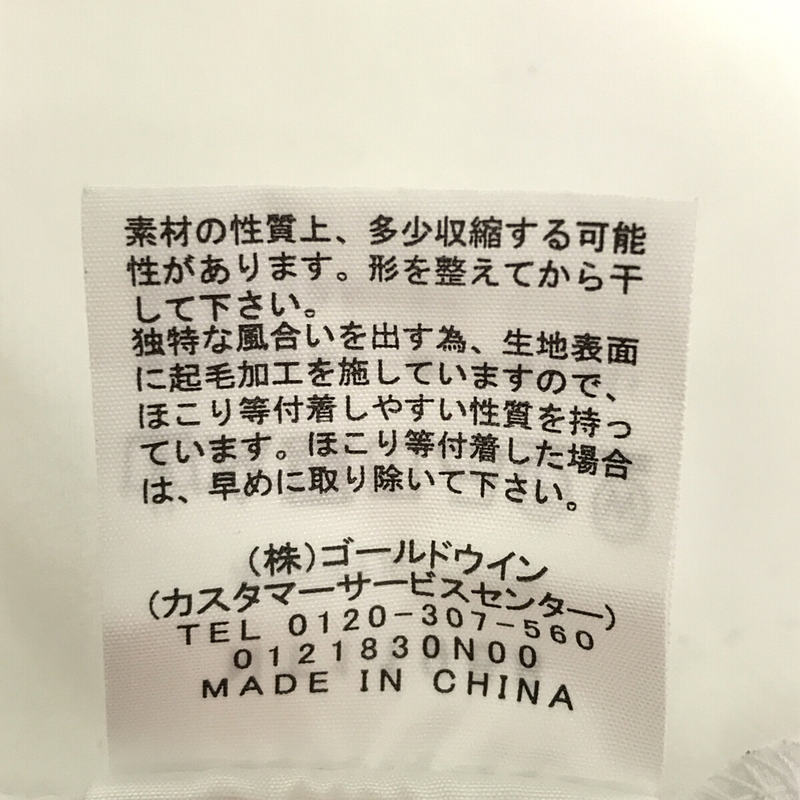 素材の性質上、多少収縮する可能
性があります。形を整えてから干
して下さい。
独特な風合いを出す為、生地表面
に起毛加工を施していますので、
ほこり等付着しやすい性質を持っ
ています。ほこり等付着した場合
は、早めに取り除いて下さい。
(株)ゴールドウイン
(カスタマーサービスセンター)
TEL 0120-307-560
0121830N00
MADE IN CHINA